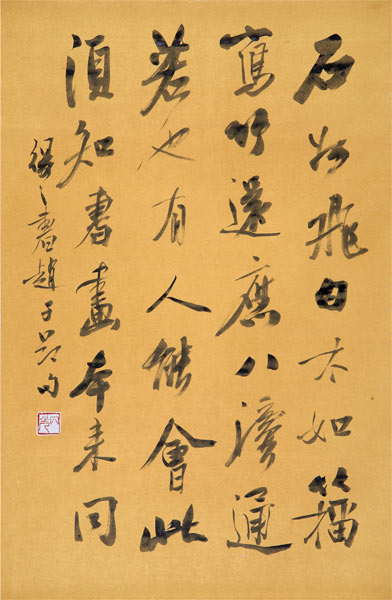 石如飛白木如籀
寫竹還應八灋通
若也有人能會此
須知書畫本来同
得之書趙子昂句